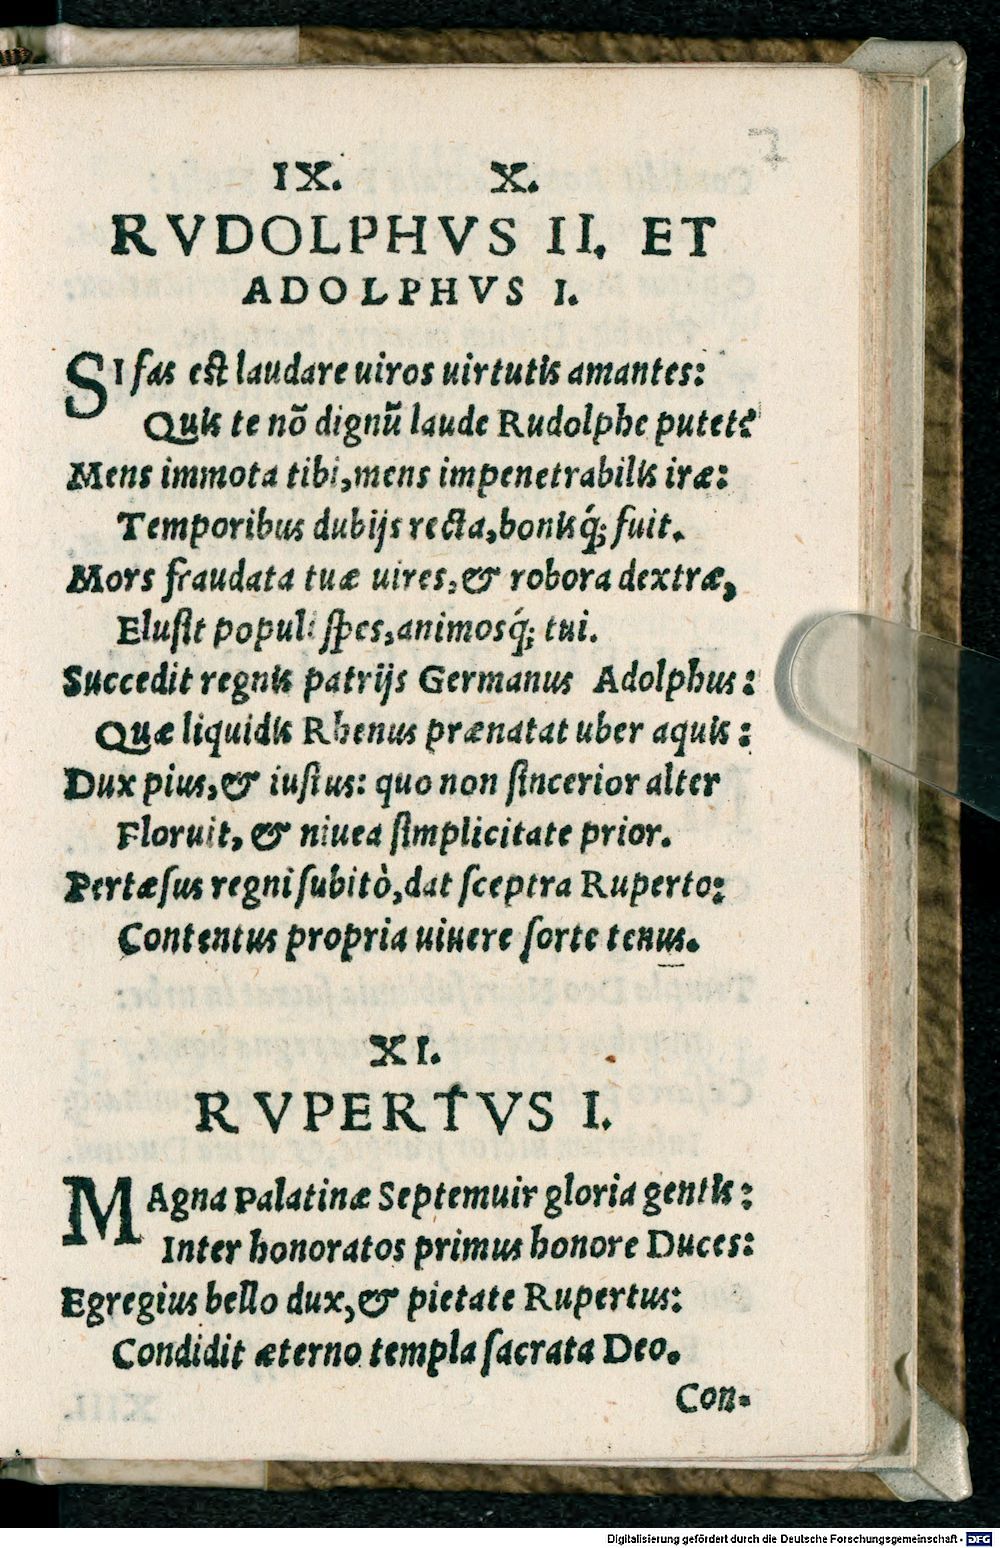 7
IX. X.
RVDOLPHVS II. ET
ADOLPHVS I.
SI fas est laudare uiros uirtutis amantes:
Quis te nõ dignũ laude Rudolphe putet?
Mens immota tibi, mens impenetrabilis iræ:
Temporibus dubijs recta, bonisq́; fuit.
Mors fraudata tuæ uires, & robora dextræ,
Elusit populi spes, animosq́; tui.
Succedit regnis patrijs Germanus Adolphus:
Quæ liquidis Rhenus prænatat uber aquis:
Dux pius, & iustus: quo non sincerior alter
Floruit, & niuea simplicitate prior.
Pertæsus regni subitò, dat sceptra Ruperto:
Contentus propria uiuere sorte tenus.
XI.
RVPERTVS I.
MAgna Palatinæ Septemuir gloria gentis:
Inter honoratos primus honore Duces:
Egregius bello dux, & pietate Rupertus:
Condidit æterno templa sacrata Deo.
Con-
Digitalisierung gefördert durch die Deutsche Forschungsgemeinschaft - DFG